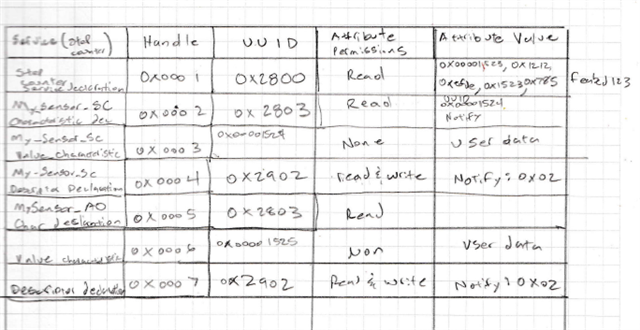 Service (Stop counter) Handle UUID Attribute Permissions Attribute Value
Stop counter Service declaration 0x0001 0x2800 Read 0x00001523, 0x1212,
0xefde, 0x1523, 0x785 feabd123
My_Sensor_SC Characteristic dec 0x0002 0x2803 Read UUID 0x00001524 Notify
My_Sensor_Sc Value Characteristic 0x0003 0x00001524 None User data
My-Sensor_Sc Descriptor Declaration 0x0004 0x2902 Read & write Notify: 0x02
MySensor_AO Char declaration 0x0005 0x2803 Read
Value characteristic 0x0006 0x00001525 Non User data
Descriptor declaration 0x0007 0x2902 Read & Write Notify: 0x02